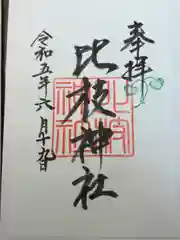 奉拝
比枝神社
令和五年六月十九日